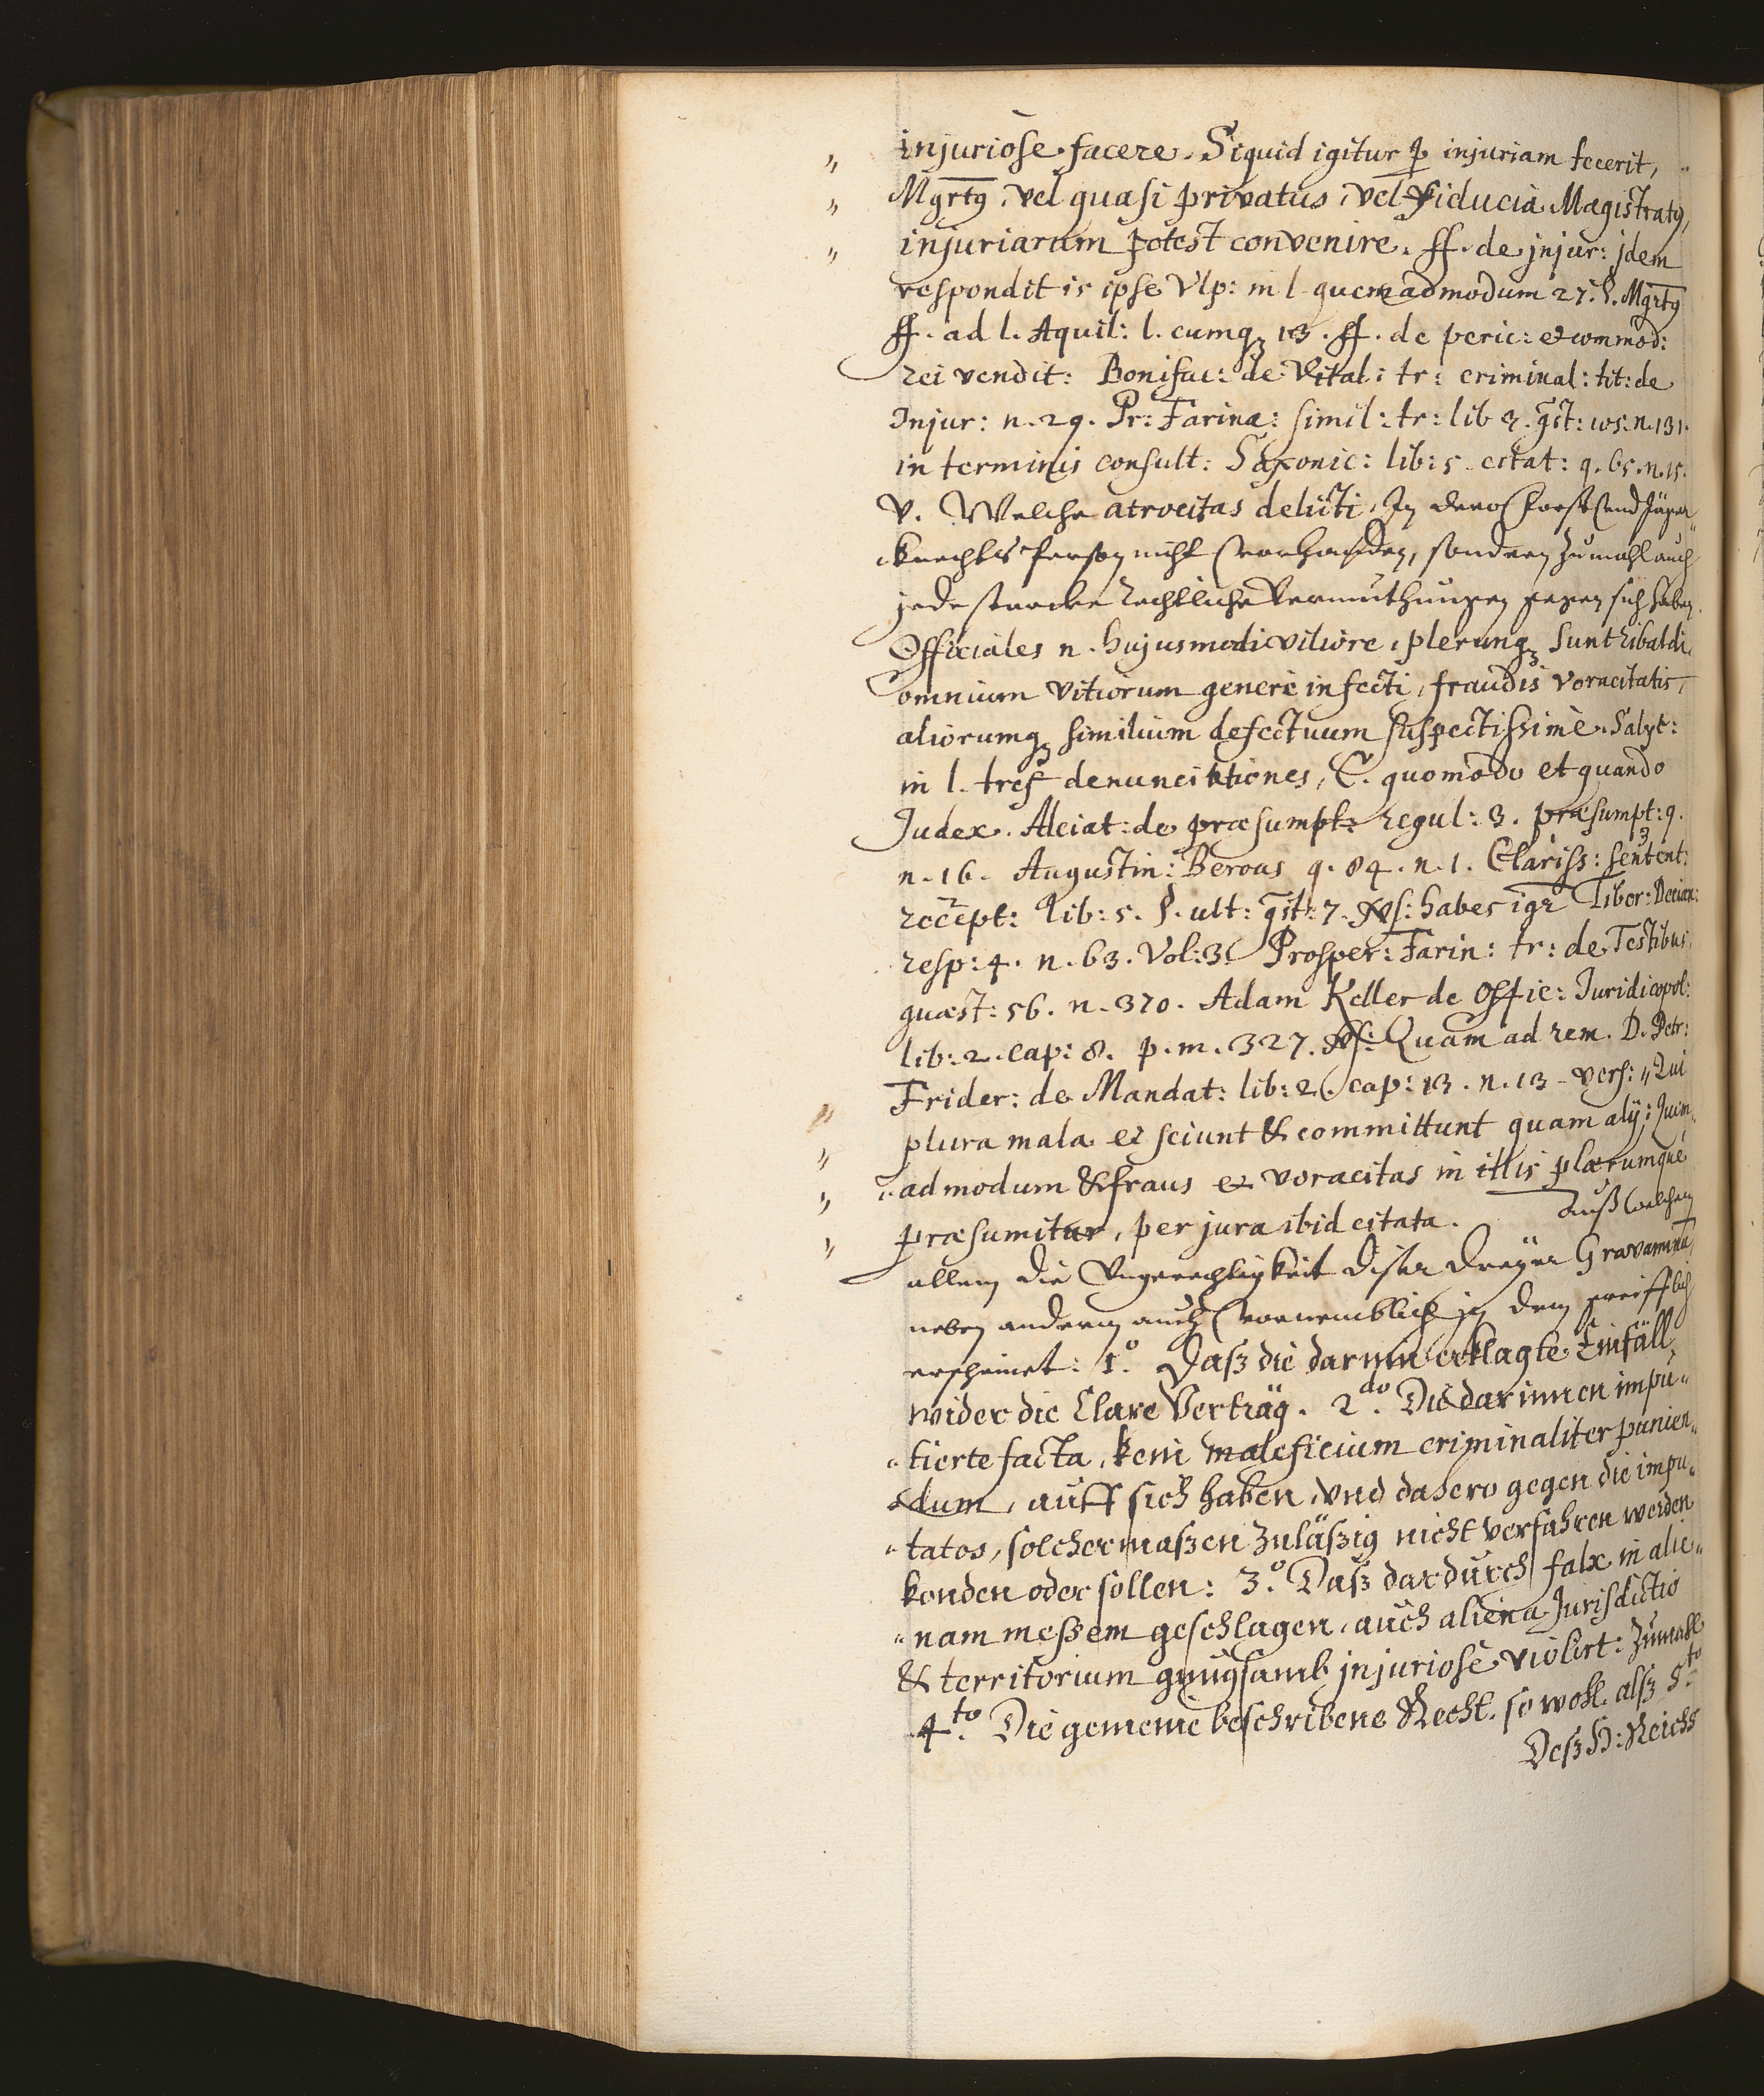 „ injuriose facere. Siquid igitur ꝑ injuriam fecerit,
„ Mgrtꝰ, vel quasi privatus, vel fiducia Magistratꝰ,
„ injuriarum potest convenire. ff. de jnjur: jdem
respondit is ipse Vlp: in l. quemadmodum 27. §. Mgrtꝰ
ff. ad l. Aquil: l. cumqꝫ 13. ff. de peric: et commod:
rei vendit: Bonifac: de Vital: tr: criminal: tit: de
Injur: n. 29. Pr: Farina: simil: tr: lib 3. qst: 105. n. 131.
in terminis consult: Saxonic: lib: 5. citat: q. 65. n. 15.
V. Welche atrocitas delicti, In deroselben Forst und Jäger„
knechts Person nicht vorhanden, sondern zumahl auch
jede starcke rechtliche Vermuthungen gegen sich haben.
Officiales n. hujusmodi viliore, plerunqꝫ sunt ribaldi,
omnium vitiorum genere infecti, fraudis voracitatis,
aliorumqꝫ similium defectuum suspectissime. Salyc:
in l. tres denunciationes, C. quomodo et quando
Judex. Alciat: de præsumpt: regul: 3. præsumpt: 9.
n. 16. Augustin: Berous q. 84. n. 1. Clariss: sentent:
recept: lib: 5. §. ult: qst: 7. vs: habes igr Tiber: Decian:
resp: 4. n. 63. Vol: 3. Prosper: Farin: tr: de Testibus,
quæst: 56. n. 370. Adam Keller de Offic: Juridicopol:
lib: 2. cap: 8. p. m. 327. vs: Quam ad rem. D. Petr:
Frider: de Mandat: lib: 2. cap: 13. n. 13. vers: „Qui
„ plura mala et sciunt & committunt quam alÿ; Quem„
„ admodum & fraus et voracitas in illis plærumque
„ præsumitur, per jura ibid citata. Auß welchem
allem die Ungerechtigkeit diser dreÿer Gravaminū,
neben anderm auch vornemblich in dem greifflich
erscheinet: 1.º Daß die darinn erklagte Einfäll,
wider die Clare Verträg. 2.do Die darinnen impu„
„tierte facta, kein maleficium criminaliter punien„
„dum, auff sich haben, vnd dahero gegen die impu„
„tatos, solchermaßen zuläßig nicht verfahren werden
konden oder sollen: 3.º Daß dardurch falx in alie„
„nam meßem geschlagen, auch aliena Jurisdictio
& territorium gnugsamb injuriose violirt: Zumahl
4.to Die gemeine beschribene Recht, so wohl. alß 5.to
Deß H: Reichs